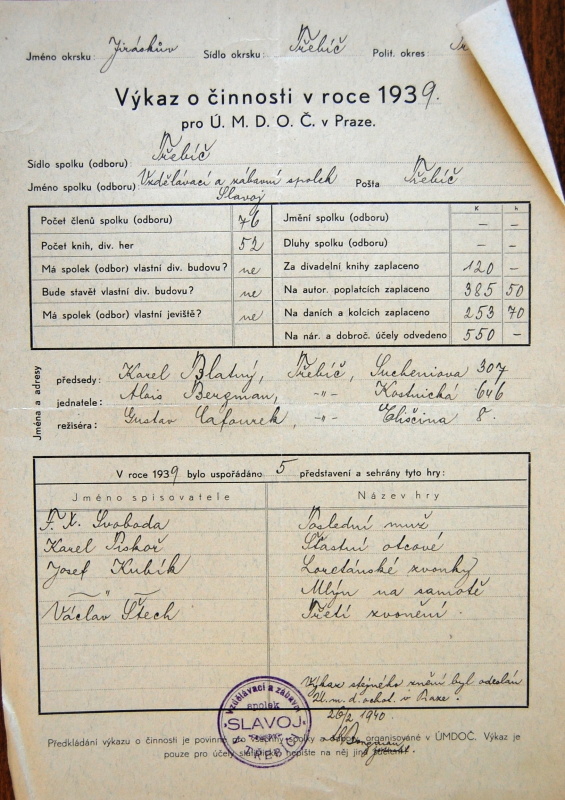 Jméno okrsku: Jiráskův Sídlo okrsku: Třebíč Polit. okres
Výkaz o činnosti v roce 1939.
pro Ú. M. D. O. Č. v Praze.
Sídlo spolku (odboru) Třebíč
Jméno spolku (odboru) Vzdělávací a zábavní spolek Pošta Třebíč
Slavoj
K h
Počet členů spolku (odboru) 76 Jmění spolku (odboru) — —
Počet knih, div. her 52 Dluhy spolku (odboru) — —
Má spolek (odbor) vlastní div. budovu? ne Za divadelní knihy zaplaceno 120 —
Bude stavět vlastní div. budovu? ne Na autor. poplatcích zaplaceno 385 50
Má spolek (odbor) vlastní jeviště? ne Na daních a kolcích zaplaceno 253 70
Na nár. a dobroč. účely odvedeno 550 —
Jména a adresy
předsedy: Karel Blatný, Třebíč, Sucheniova 307
jednatele: Alois Bergman, -"- Kostnická 646
režiséra: Gustav Cafourek, -"- Eliščina 8.
V roce 1939 bylo uspořádáno 5 představení a sehrány tyto hry:
Jméno spisovatele Název hry
F. X. Svoboda Poslední muž
Karel Piskoř Šťastní otcové
Josef Kubík Loretánské zvonky
—"— Mlýn na samotě
Václav Štech Třetí zvonění.
Výkaz stejného znění byl odeslán
Ú. m. d. ochot. v Praze.
26/2 1940.
Bergman
Vzdělávací a zábavní
spolek
"SLAVOJ"
TŘEBÍČ
Předkládání výkazu o činnosti je povinné pro všechny spolky a odbory organisované v ÚMDOČ. Výkaz je
pouze pro účely statistické, nepište na něj jiná